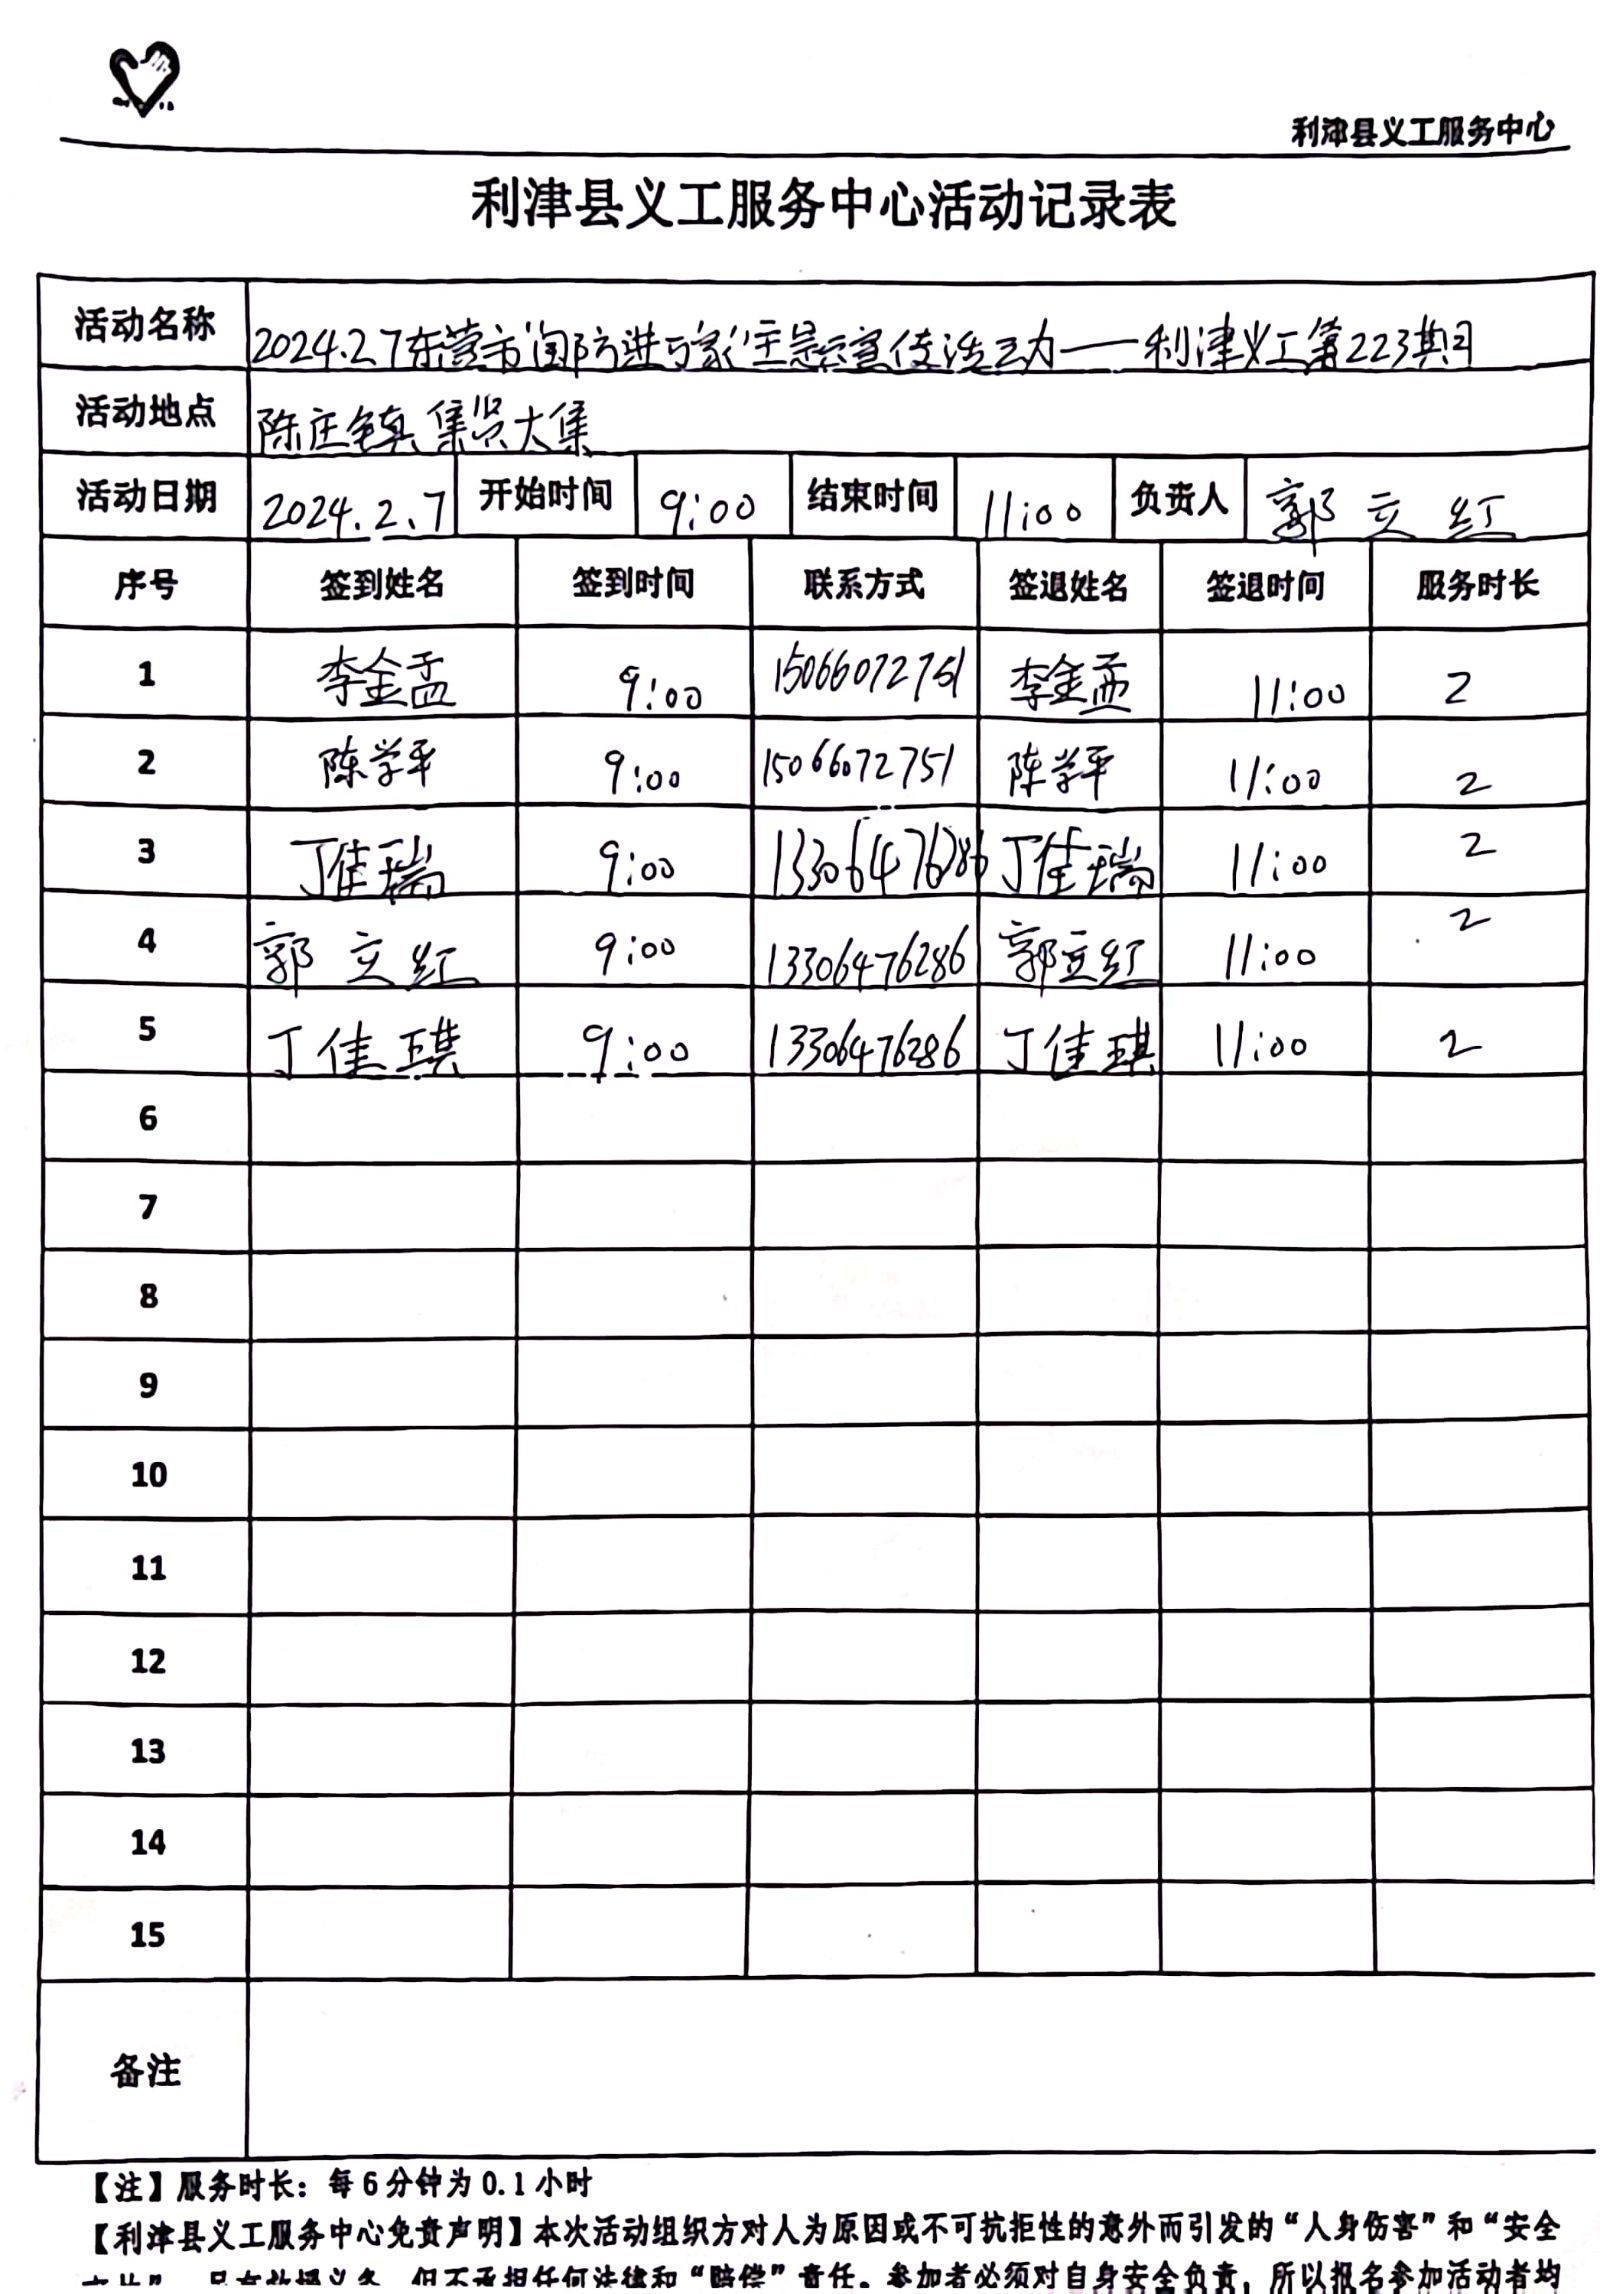 利津县义工服务中心
利津县义工服务中心活动记录表
活动名称 2024.2.7东营市"国防进万家"主题宣传活动——利津义工第223期
活动地点 陈庄镇集贤大集
活动日期 2024.2.7 开始时间 9:00 结束时间 11:00 负责人 郭立红
序号 签到姓名 签到时间 联系方式 签退姓名 签退时间 服务时长
1 李金孟 9:00 15066072751 李金孟 11:00 2
2 陈学平 9:00 15066072751 陈学平 11:00 2
3 丁佳瑞 9:00 13306476286 丁佳瑞 11:00 2
4 郭立红 9:00 13306476286 郭立红 11:00 2
5 丁佳琪 9:00 13306476286 丁佳琪 11:00 2
6
7
8
9
10
11
12
13
14
15
备注
【注】服务时长：每6分钟为0.1小时
【利津县义工服务中心免责声明】本次活动组织方对人为原因或不可抗拒性的意外而引发的“人身伤害”和“安全
但不承担任何法律和“赔偿”责任。参加者必须对自身安全负责，所以报名参加活动者均